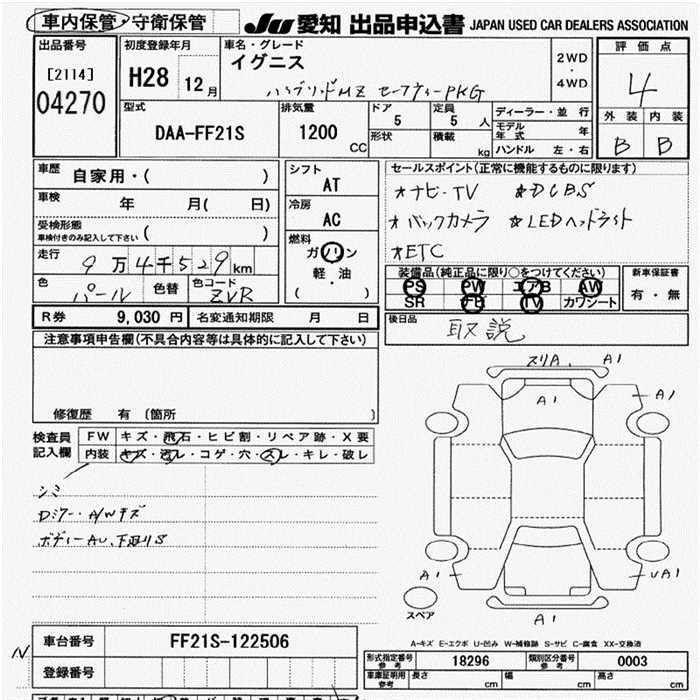 車内保管・守衛保管 JU 愛知 出品申込書 JAPAN USED CAR DEALERS ASSOCIATION
出品番号 初度登録年月 車名・グレード 2WD・4WD 評価点
[2114] H28 12月 イグニス 4
04270 ハイブリッドMZ セーフティーPKG 外装 内装
型式 排気量 ドア 定員 ディーラー・並行 B B
DAA-FF21S 1200 CC 5 5 人 モデル年式 年
形状 積載 kg ハンドル 左・右
車歴 自家用・( ) シフト AT セールスポイント(正常に機能するものに限ります)
車検 年 月( 日) 冷房 AC ☆ナビ・TV ☆DCBS
受検形態 車検付きのみ記入して下さい ( ) ☆バックカメラ ☆LEDヘッドライト
走行 9万4千529km 燃料 ガソリン 軽・油 ( ) ☆ETC
色 パール 色替 色コード ZVR 装備品(純正品に限り○をつけてください) 新車保証書
PS PW エアB AW 有・無
SR FB TV カワシート
R券 9,030 円 名変通知期限 月 日 後日品 取説
注意事項申告欄(不具合内容等は具体的に記入して下さい)
修復歴 有 〔箇所 〕
検査員記入欄 FW キズ・飛石・ヒビ割・リペア跡・X要
内装 キズ・汚レ・コゲ・穴・スレ・キレ・破レ
シミ
Dミラー・A/Wキズ
ボディーAU、下廻りS
スリA A1
A1 A1
A1 UA1
スペア A1
A-キズ E-エクボ U-凹み W-補修跡 S-サビ C-腐食 XX-交換済
N 車台番号 FF21S-122506 形式指定番号 参考 18296 類別区分番号 参考 0003
登録番号 車庫証明用 参考 長さ cm 幅 cm 高さ cm